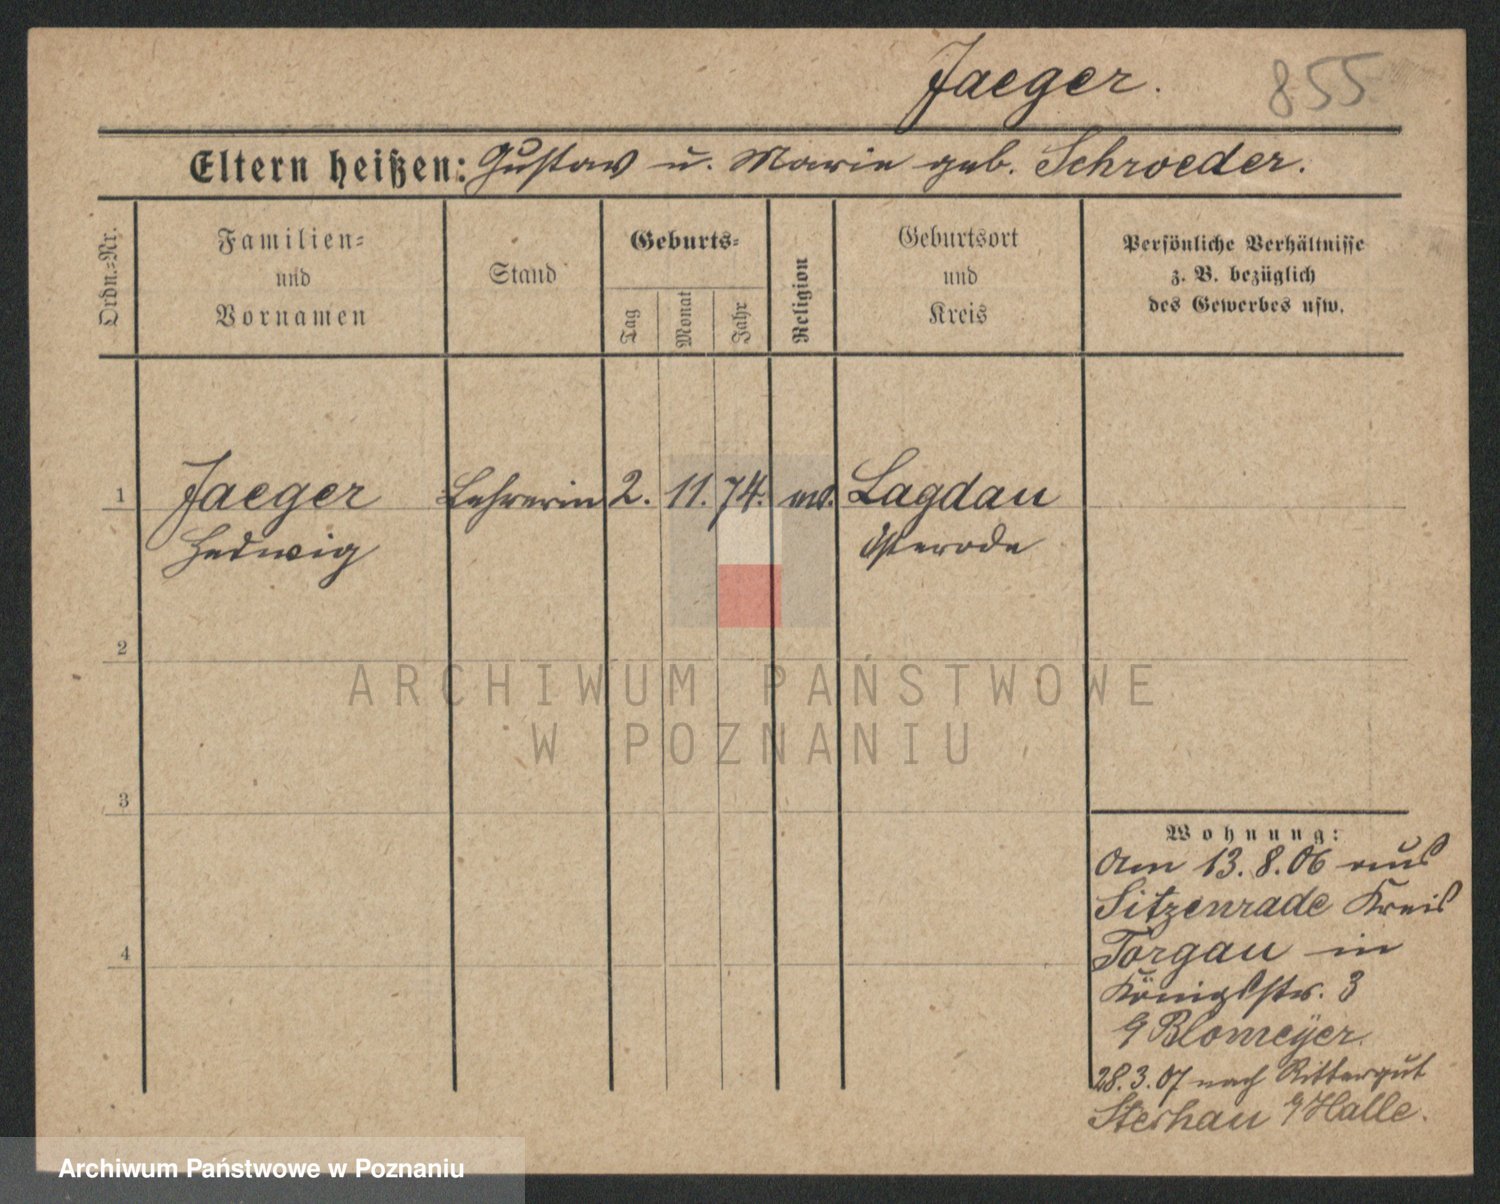 Jaeger.
855
Eltern heißen: Gustav u. Marie geb. Schroeder.
Ordn.-Nr.
Familien-
und
Vornamen
Stand
Geburts-
Tag
Monat
Jahr
Religion
Geburtsort
und
Kreis
Persönliche Verhältnisse
z. B. bezüglich
des Gewerbes usw.
1 Jaeger Lehrerin 2. 11. 74. Lagdau
Hedwig Osterode
2
ARCHIWUM PAŃSTWOWE
W POZNANIU
3
4
Wohnung:
Am 13. 8. 06 aus
Sitzenrade Kreis
Torgau in
Königsstr. 3
Blomeyer
28. 3. 07 nach Rittergut
Halle.
Archiwum Państwowe w Poznaniu